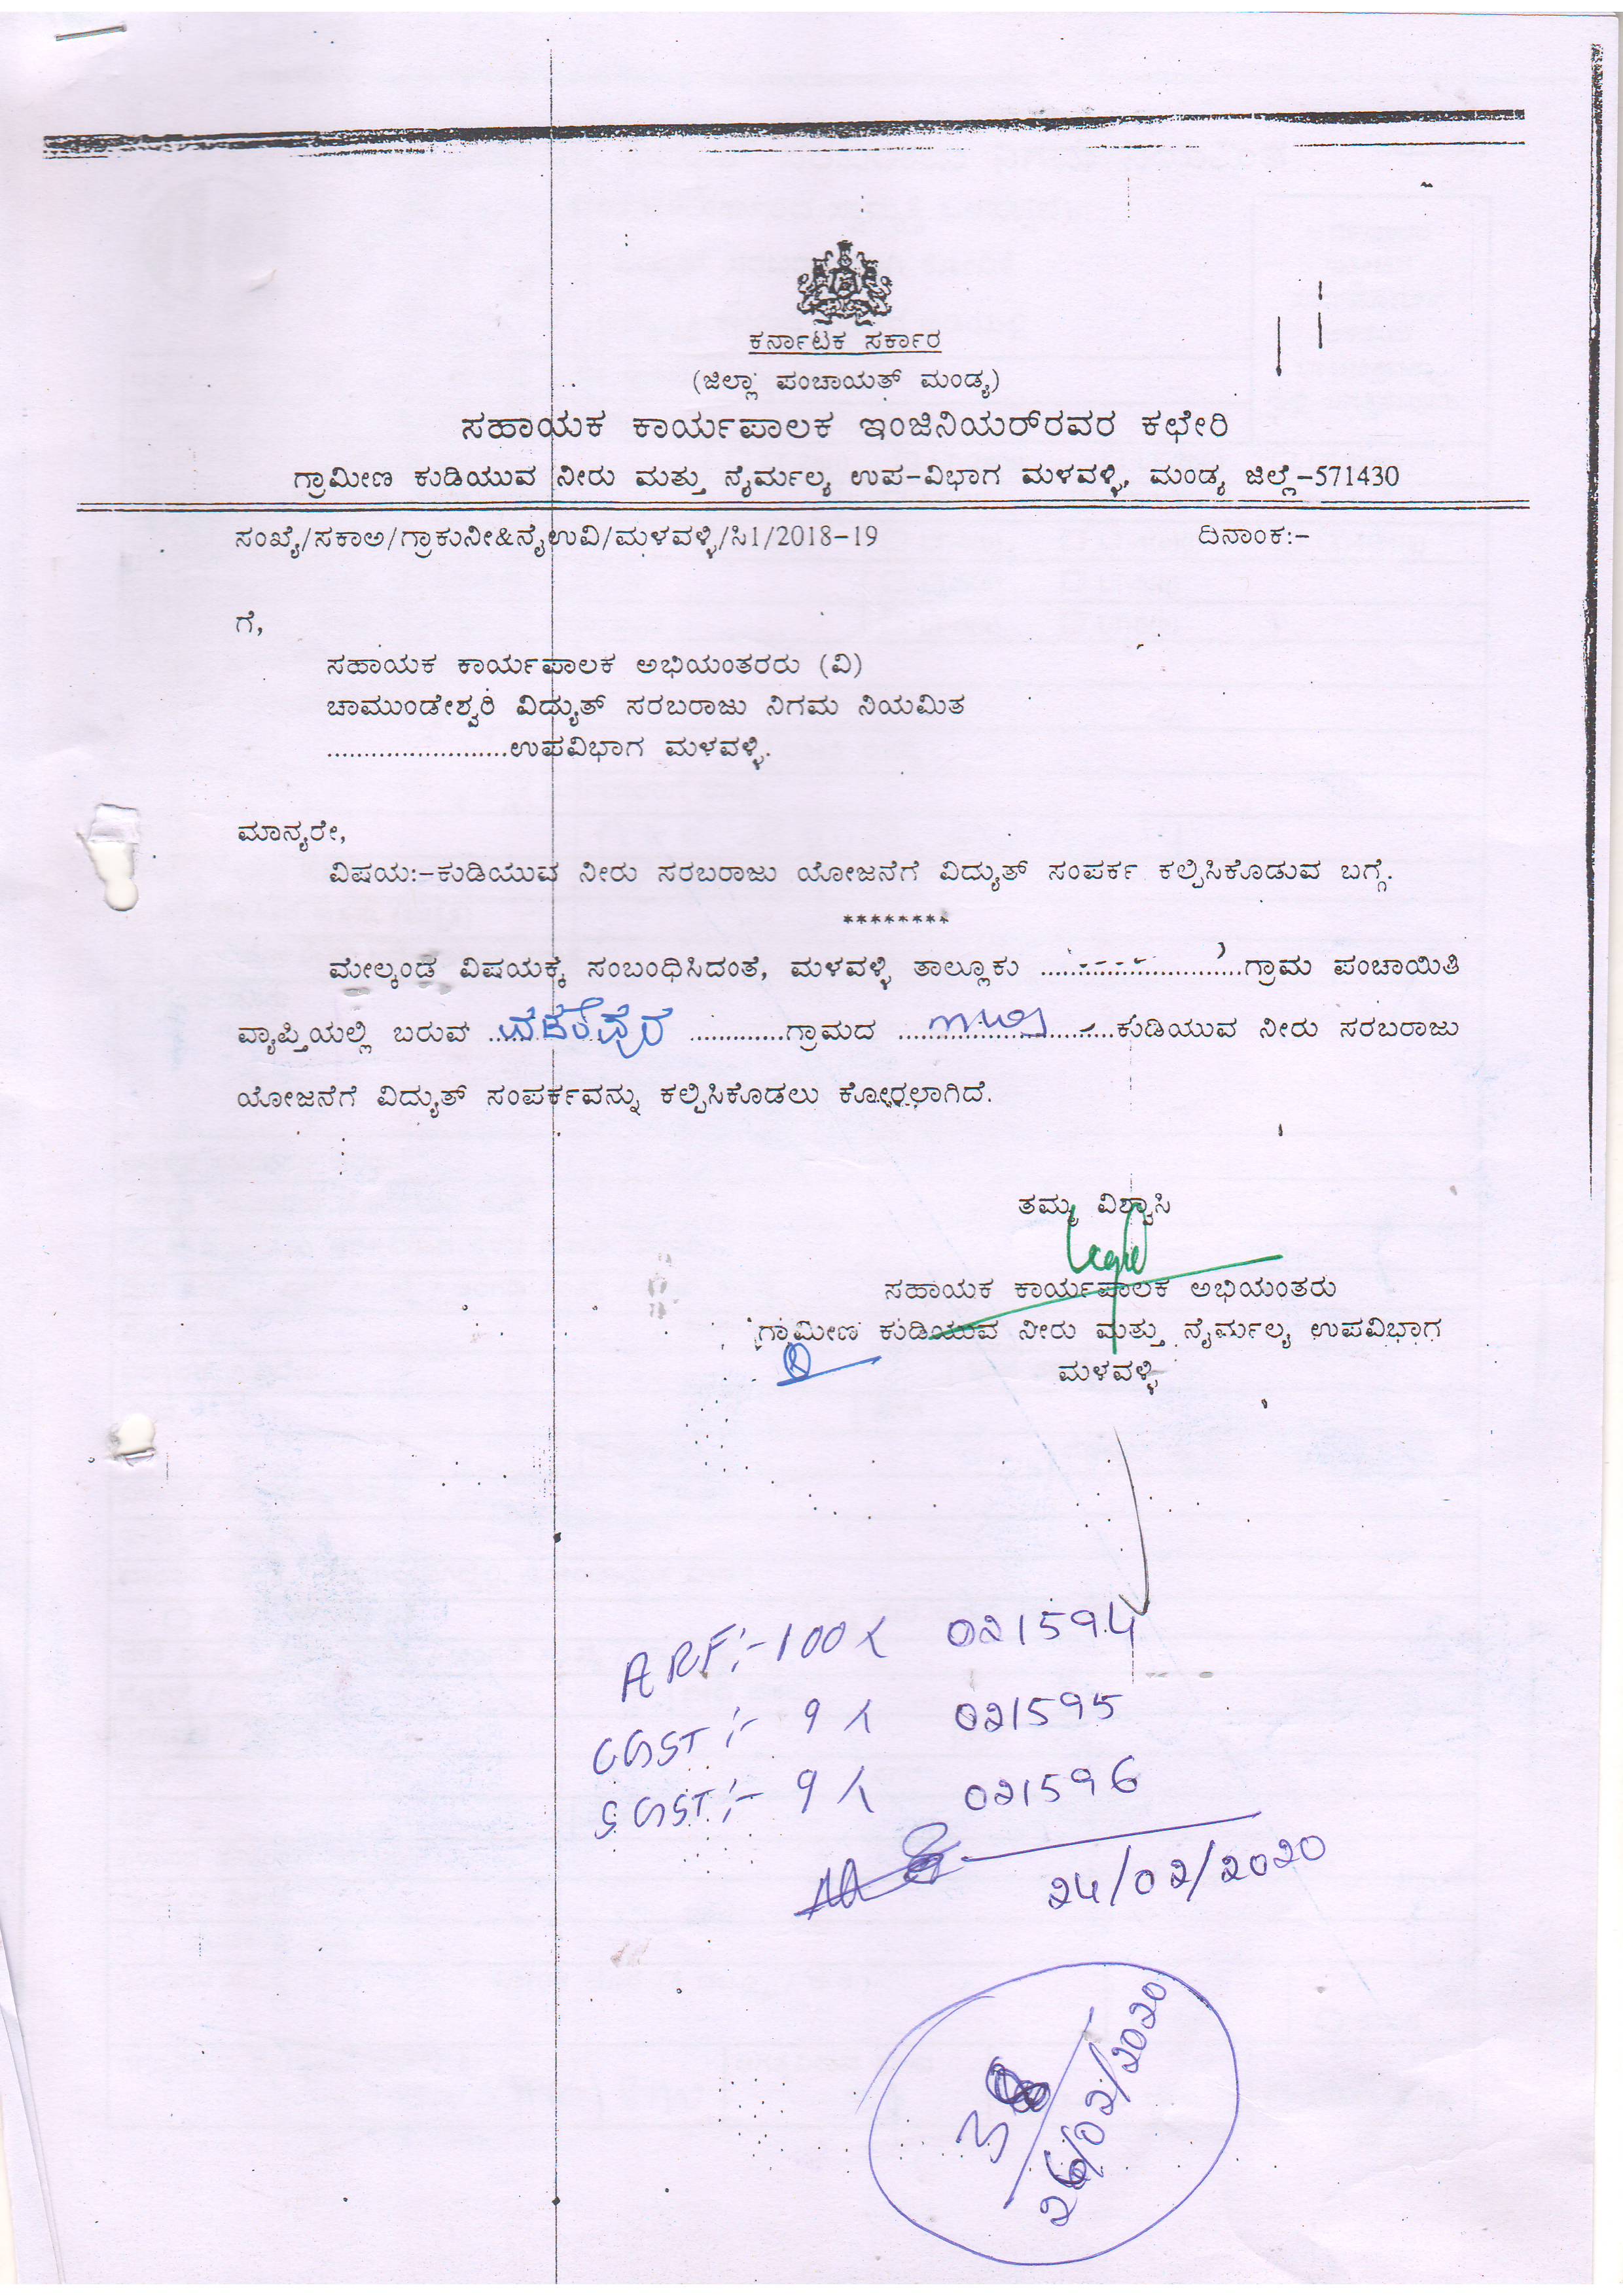 ಕರ್ನಾಟಕ ಸರ್ಕಾರ
(ಜಿಲ್ಲಾ ಪಂಚಾಯತ್ ಮಂಡ್ಯ)
ಸಹಾಯಕ ಕಾರ್ಯಪಾಲಕ ಇಂಜಿನಿಯರ್‌ರವರ ಕಛೇರಿ
ಗ್ರಾಮೀಣ ಕುಡಿಯುವ ನೀರು ಮತ್ತು ನೈರ್ಮಲ್ಯ ಉಪ-ವಿಭಾಗ ಮಳವಳ್ಳಿ, ಮಂಡ್ಯ ಜಿಲ್ಲೆ-571430
ಸಂಖ್ಯೆ/ಸಕಾಅ/ಗ್ರಾಕುನೀ&ನೈಉವಿ/ಮಳವಳ್ಳಿ/ಸಿ1/2018-19 ದಿನಾಂಕ:-
ಗೆ,
ಸಹಾಯಕ ಕಾರ್ಯಪಾಲಕ ಅಭಿಯಂತರರು (ವಿ)
ಚಾಮುಂಡೇಶ್ವರಿ ವಿದ್ಯುತ್ ಸರಬರಾಜು ನಿಗಮ ನಿಯಮಿತ
........................ಉಪವಿಭಾಗ ಮಳವಳ್ಳಿ.
ಮಾನ್ಯರೇ,
ವಿಷಯ:-ಕುಡಿಯುವ ನೀರು ಸರಬರಾಜು ಯೋಜನೆಗೆ ವಿದ್ಯುತ್ ಸಂಪರ್ಕ ಕಲ್ಪಿಸಿಕೊಡುವ ಬಗ್ಗೆ.
********
ಮೇಲ್ಕಂಡ ವಿಷಯಕ್ಕೆ ಸಂಬಂಧಿಸಿದಂತೆ, ಮಳವಳ್ಳಿ ತಾಲ್ಲೂಕು ..........................ಗ್ರಾಮ ಪಂಚಾಯಿತಿ
ವ್ಯಾಪ್ತಿಯಲ್ಲಿ ಬರುವ ............ಗ್ರಾಮದ ............ಕುಡಿಯುವ ನೀರು ಸರಬರಾಜು
ಯೋಜನೆಗೆ ವಿದ್ಯುತ್ ಸಂಪರ್ಕವನ್ನು ಕಲ್ಪಿಸಿಕೊಡಲು ಕೋರಲಾಗಿದೆ.
ತಮ್ಮ ವಿಶ್ವಾಸಿ
ಸಹಾಯಕ ಕಾರ್ಯಪಾಲಕ ಅಭಿಯಂತರು
ಗ್ರಾಮೀಣ ಕುಡಿಯುವ ನೀರು ಮತ್ತು ನೈರ್ಮಲ್ಯ ಉಪವಿಭಾಗ
ಮಳವಳ್ಳಿ
ARF:-100 021594
CGST:- 9 021595
SGST:- 9 021596
24/02/2020
38
26/02/2020